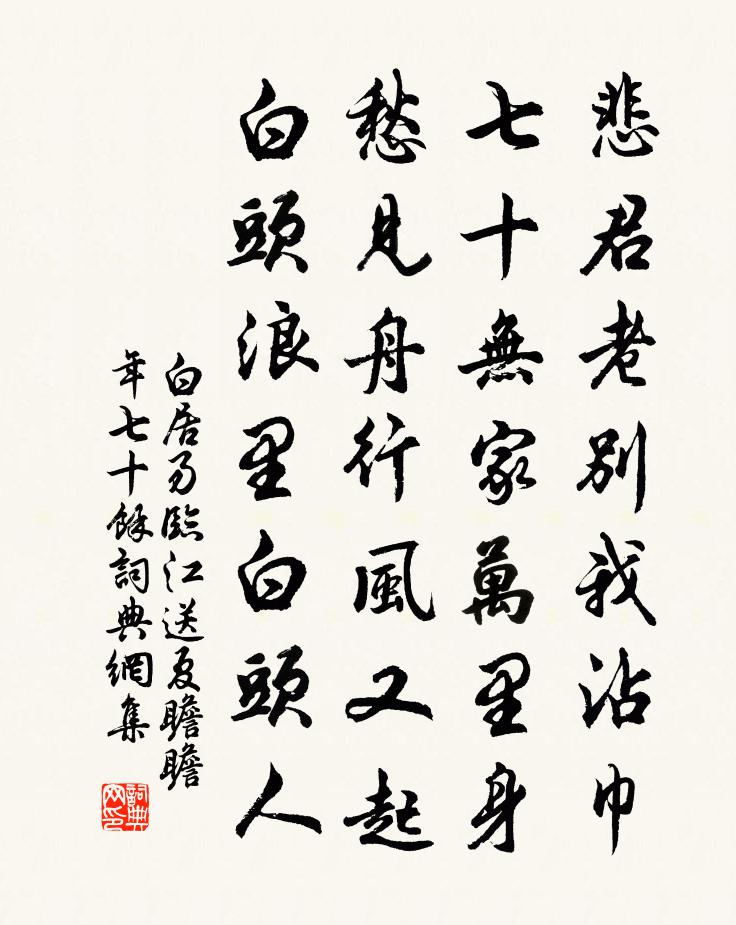 悲君老別我沾巾
七十無家萬里身
愁見舟行風又起
白頭浪里白頭人
白居易臨江送夏瞻瞻
年七十餘詞典網集
詞典
网印